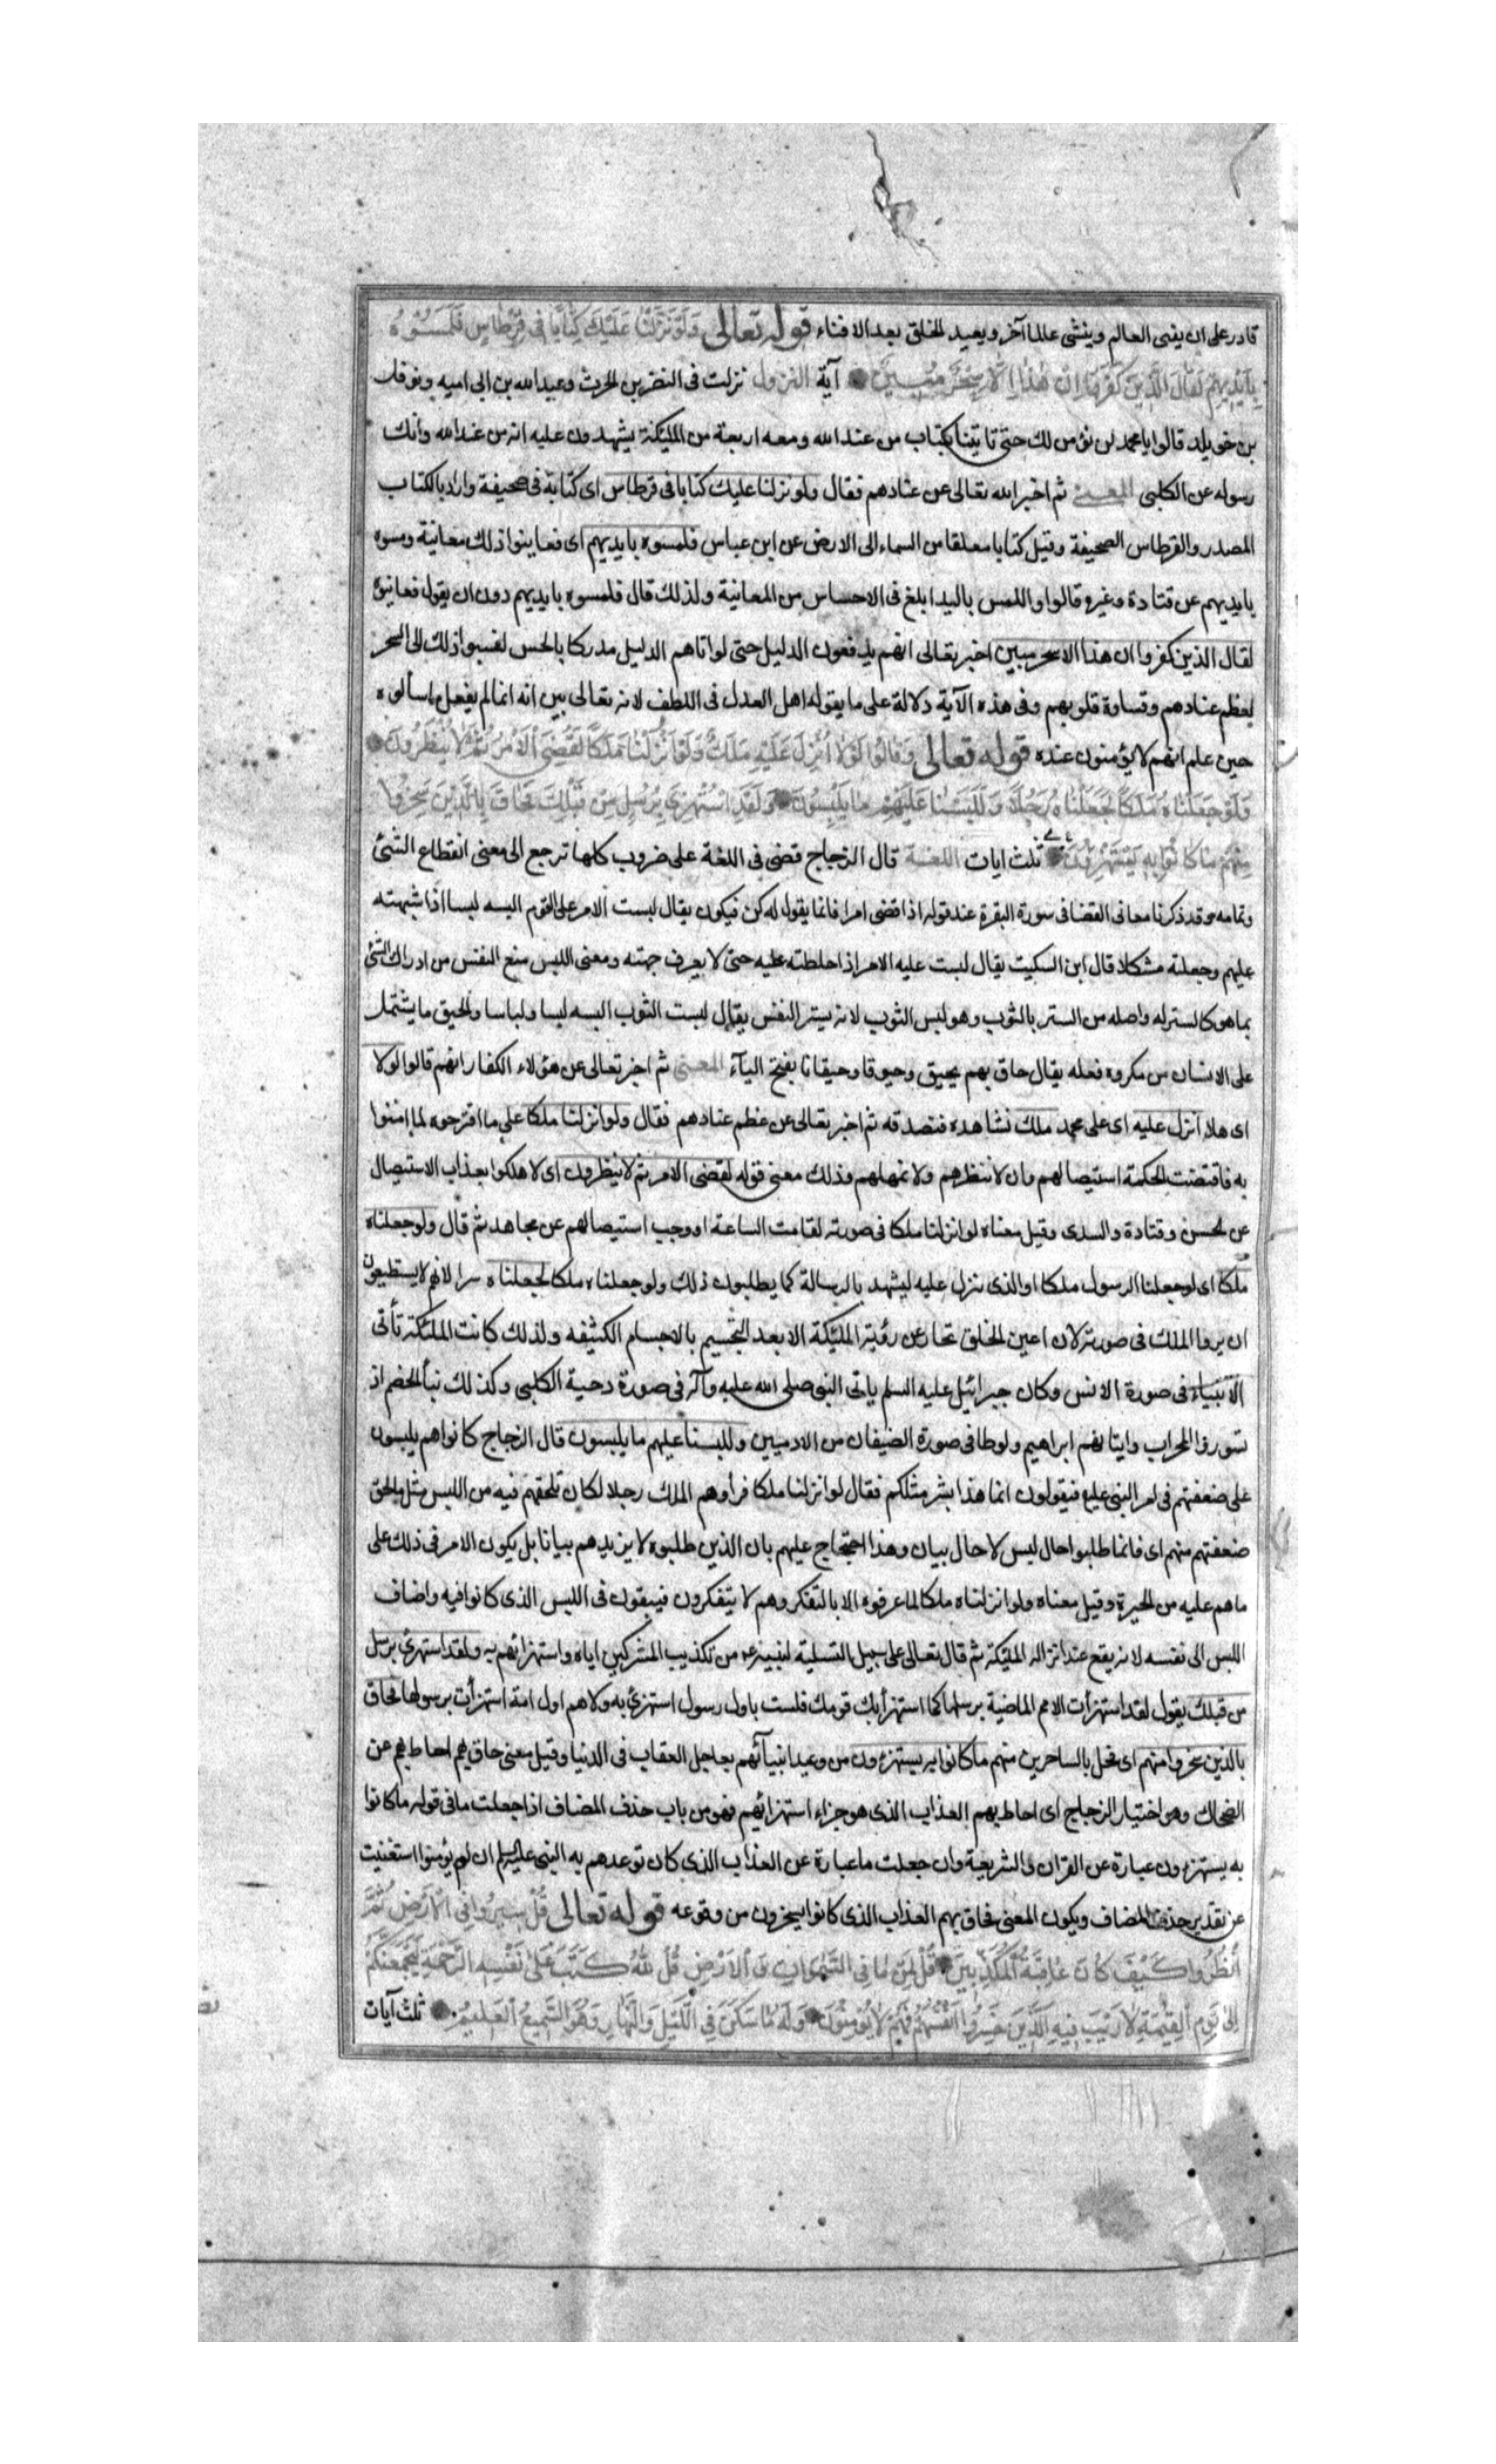 قادر على ان يفنى العالم وينشى عالما آخر ويعيد الخلق بعد الافناء قوله تعالى وَلَوْ نَزَّلْنَا عَلَيْكَ كِتَابًا فِي قِرْطَاسٍ فَلَمَسُوهُ
بِأَيْدِيهِمْ لَقَالَ الَّذِينَ كَفَرُوا إِنْ هَذَا إِلَّا سِحْرٌ مُبِينٌ آية النزول نزلت فى النضر بن الحرث وعبد الله بن ابى اميه ونوفل
بن خويلد قالوا يا محمد لن نؤمن لك حتى تاتينا بكتاب من عند الله ومعه اربعة من المليكة يشهدون عليه انه من عند الله وانك
رسوله عن الكلبى المعنى ثم اخبر الله تعالى عن عنادهم فقال ولو نزلنا عليك كتابا فى قرطاس اى كتابة فى صحيفة واراد بالكتاب
المصدر والقرطاس الصحيفة وقيل كتابا معلقا من السماء الى الارض عن ابن عباس فلمسوه بايديهم اى فعاينوا ذلك معاينة ومسوه
بايديهم عن قتادة وغيره قالوا واللمس باليد ابلغ فى الاحساس من المعانية ولذلك قال فلمسوه بايديهم دون ان يقول فعاينوه
لقال الذين كفروا ان هذا الا سحر مبين اخبر تعالى انهم يدفعون الدليل حتى لو اتاهم الدليل مدركا بالحس لنسبوا ذلك الى السحر
لعظم عنادهم وقساوة قلوبهم وفى هذه الآية دلالة على ما يقوله اهل العدل فى اللطف لانه تعالى بين انه انما لم يفعل ما سألوه
حين علم انهم لا يؤمنون عنده قوله تعالى وَقَالُوا لَوْلَا أُنْزِلَ عَلَيْهِ مَلَكٌ وَلَوْ أَنْزَلْنَا مَلَكًا لَقُضِيَ الْأَمْرُ ثُمَّ لَا يُنْظَرُونَ
وَلَوْ جَعَلْنَاهُ مَلَكًا لَجَعَلْنَاهُ رَجُلًا وَلَلَبَسْنَا عَلَيْهِمْ مَا يَلْبِسُونَ وَلَقَدِ اسْتُهْزِئَ بِرُسُلٍ مِنْ قَبْلِكَ فَحَاقَ بِالَّذِينَ سَخِرُوا
مِنْهُمْ مَا كَانُوا بِهِ يَسْتَهْزِؤُنَ ثلث ايات اللغة قال الزجاج قضى فى اللغة على ضروب كلها ترجع الى معنى انقطاع الشئ
وتمامه وقد ذكرنا معانى القضا فى سورة البقرة عند قوله اذا قضى امرا فانما يقول له كن فيكون يقال لبست الامر على القوم البسه لبسا اذا شبهته
عليهم وجعلته مشكلا قال ابن السكيت يقال لبست عليه الامر اذا خلطته عليه حتى لا يعرف جهته ومعنى اللبس منع النفس من ادراك الشئ
بما هو كالستر له واصله من الستر بالثوب وهو لبس الثوب لانه يستر النفس يقال لبست الثوب البسه لبسا ولباسا والحيق ما يشتمل
على الانسان من مكروه فعله يقال حاق بهم يحيق وحيوقا وحيقانا بفتح اليآء المعنى ثم اخبر تعالى عن هؤلاء الكفار انهم قالوا لولا
اى هلا انزل عليه اى على محمد ملك نشاهده فنصدقه ثم اخبر تعالى عن عظم عنادهم فقال ولو انزلنا ملكا على ما اقترحوه لما امنوا
به فاقتضت الحكمة استيصالهم وان لا ننظرهم ولا نمهلهم وذلك معنى قوله لقضى الامر ثم لا ينظرون اى لاهلكوا بعذاب الاستيصال
عن الحسن وقتادة والسدى وقيل معناه لو انزلنا ملكا فى صورته لقامت الساعة او وجب استيصالهم عن مجاهد ثم قال ولو جعلناه
ملكا اى لو جعلنا الرسول ملكا او الذى ننزل عليه ليشهد بالرسالة كما يطلبون ذلك ولو جعلناه ملكا لجعلناه لانهم لا يستطيعون
ان يروا الملك فى صورته لان اعين الخلق تحار عن رؤية المليكة الا بعد التجسيم بالاجسام الكثيفه ولذلك كانت المليكة تأتى
الانبياء فى صورة الانس وكان جبرائيل عليه السلم ياتى النبى صلى الله عليه وآله فى صورة دحية الكلبى وكذلك نبأ الخصم اذ
تسوروا المحراب وايتانهم ابراهيم ولوطا فى صورة الضيفان من الادميين وللبسنا عليهم ما يلبسون قال الزجاج كانوا هم يلبسون
على ضعفتهم فى امر النبى فيقولون انما هذا بشر مثلكم فقال لو انزلنا ملكا فرأوهم الملك رجلا لكان يلحقهم فيه من اللبس مثل ما لحق
ضعفتهم منهم اى فانما طلبوا حال لبس لا حال بيان وهذا احتجاج عليهم بان الذين طلبوه لا يزيدهم بيانا بل يكون الامر فى ذلك على
ما هم عليه من الحيرة وقيل معناه ولو انزلناه ملكا لما عرفوه الا بالتفكر وهم لا يتفكرون فيبقون فى اللبس الذى كانوا فيه واضاف
اللبس الى نفسه لانه يقع عند انزاله المليكة ثم قال تعالى على سبيل التسلية لنبيه من تكذيب المشركين اياه واستهزائهم به ولقد استهزئ برسل
من قبلك يقول لقد استهزأت الامم الماضية برسلها كما استهزأ بك قومك فلست باول رسول استهزئ به ولا هم اول امة استهزأت برسولها فحاق
بالذين سخروا منهم اى فحل بالساخرين منهم ما كانوا به يستهزءون من وعيد انبيآئهم بعاجل العقاب فى الدنيا وقيل معنى حاق بهم احاط بهم عن
الضحاك وهو اختيار الزجاج اى احاط بهم العذاب الذى هو جزاء استهزائهم فهو من باب حذف المضاف اذا جعلت ما فى قوله ما كانوا
به يستهزءون عبارة عن القران والشريعة وان جعلت ما عبارة عن العذاب الذى كان توعدهم به النبى عليه السلم ان لم يؤمنوا استغنيت
عن تقدير حذف المضاف ويكون المعنى فحاق بهم العذاب الذى كانوا يسخرون من وقوعه قوله تعالى قُلْ سِيرُوا فِي الْأَرْضِ ثُمَّ
انْظُرُوا كَيْفَ كَانَ عَاقِبَةُ الْمُكَذِّبِينَ قُلْ لِمَنْ مَا فِي السَّمَوَاتِ وَالْأَرْضِ قُلْ لِلَّهِ كَتَبَ عَلَى نَفْسِهِ الرَّحْمَةَ لَيَجْمَعَنَّكُمْ
إِلَى يَوْمِ الْقِيَمَةِ لَا رَيْبَ فِيهِ الَّذِينَ خَسِرُوا أَنْفُسَهُمْ فَهُمْ لَا يُؤْمِنُونَ وَلَهُ مَا سَكَنَ فِي اللَّيْلِ وَالنَّهَارِ وَهُوَ السَّمِيعُ الْعَلِيمُ ثلث آيات